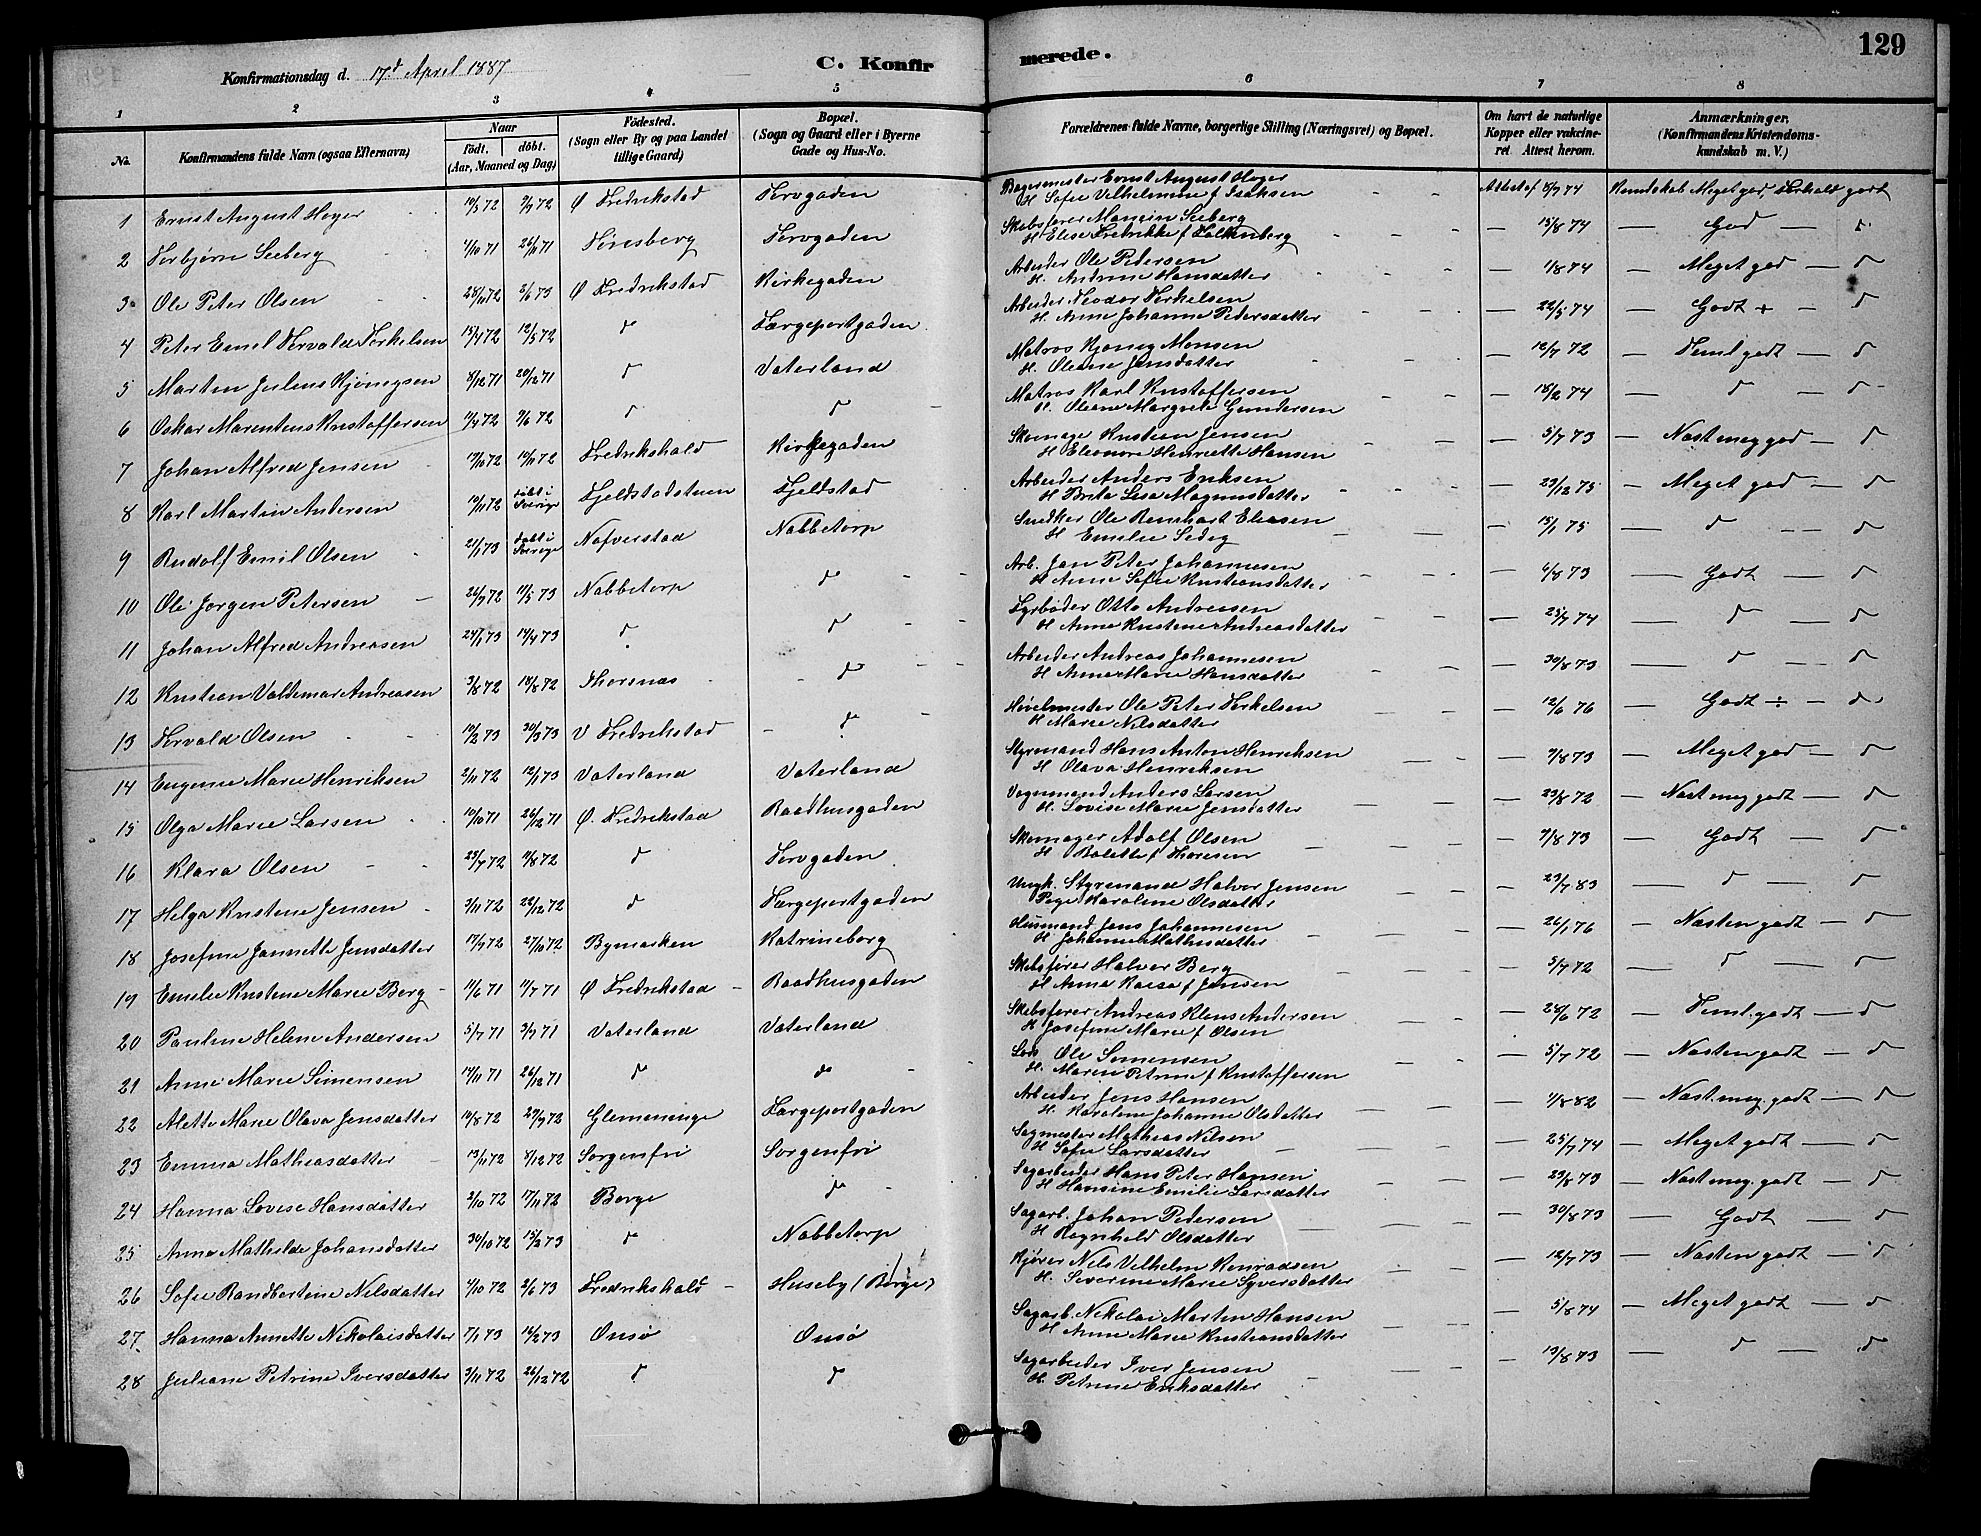 129
Konfirmationsdag d. 17d April 1887
C. Konfirmerede.
1 2 3 4 5 6 7 8
No.
Konfirmandens fulde Navn (ogsaa Efternavn)
Naar
födt. döbt.
(Aar, Maaned og Dag)
Födested.
(Sogn eller By og paa Landet
tillige Gaard)
Bopæl.
(Sogn og Gaard eller i Byerne
Gade og Hus-No.
Forældrenes fulde Navne, borgerlige Stilling (Næringsvei) og Bopæl.
Om havt de naturlige
Kopper eller vakcine-
ret Attest herom.
Anmærkninger.
(Konfirmandens Kristendoms-
kundskab m. V.)
1 Ernst August Høyer Ø Fredrikstad Torvgaden Bagermester Ernst August Høyer
H Sofie Vilhelmine f Isaksen Attest af 8/7 74 Kundskab Meget god, Forhold godt
2 Torbjørn Seeberg 4/10 71 26/11 71 Tønsberg Torvgaden Skibsfører Seeberg
H Elise Fredrikke f Falkenberg — 15/8 74 — God — d
3 Ole Peter Olsen 28/11 72 Ø Fredrikstad Kirkegaden Arbeider Ole Pedersen
H. Andrine Hansdatter — 1/8 74 — Meget god — d
4 Peter Emil Torvald Torkelsen 15/4 72 12/5 72 d Færgeportgaden Arbeider Teodor Torkelsen
H. Anne Johanne Pedersdatter — 22/5 74 — Godt + — d
5 Martin Julius Kjønigsen 8/12 71 20/12 71 d Vaterland Matros Kjønig Monsen
H. Oleane Jensdatter — 12/7 72 — Teml godt — d
6 Oskar Marentius Kristoffersen 9/6 72 d d Matros Karl Kristoffersen
H. Oleane Margrete Gundersen — 18/2 74 — d d
7 Johan Alfred Jensen Fredrikshald Kirkegaden Skomager Kristian Jensen
H Eleonora Henriette Hansen — 5/7 73 — Næst meg god — d
8 Karl Martin Andersen 19/11 72 døbt i
Sverige Fjeldstadstuen Fjeldstad Arbeider Anders Eriksen
H Brita Lisa Magnusdatter — 29/12 75 — Meget god — d
9 Rudolf Emil Olsen 21/1 73 døbt i
Sverige Nafverstad Nabbetorp Snedker Ole Reinhart Eliasen
H Emilie — 15/1 75 — d — d
10 Ole Jørgen Petersen 26/7 72 11/5 73 Nabbetorp d Arb. Jan Peter Johannesen
H Anne Sofie Kristiansdatter — 6/8 73 — Godt — d
11 Johan Alfred Andreasen 24/1 73 14/4 73 d d Fyrbøder Otto Andreasen
H Anne Kristine Andreasdatter — 25/7 74 — d — d
12 Kristian Valdemar Andreasen 3/8 72 18/8 72 Thorsnæs d Arbeider Andreas Johannesen
H. Anne Marie Hansdatter — 30/8 73 — d — d
13 Torvald Olsen 19/2 73 30/3 73 V Fredrikstad d Høvelmester Ole Peter Torkelsen
H Marie Nilsdatter — 12/6 76 — Godt ÷ — d
14 Eugenie Marie Henriksen 2/11 72 12/1 73 Vaterland Vaterland Styrmand Hans Anton Henriksen
H Olava Henriksen — 9/8 73 — Meget god — d
15 Olga Marie Larsen 10/10 71 26/12 71 Ø. Fredrikstad Raadhusgaden Vognmand Anders Larsen
H. Lovise Marie Jensdatter — 29/8 72 — Næst meg godt — d
16 Klara Olsen 23/7 72 11/8 72 d Torvgaden Skomager Adolf Olsen
H Bolette f Thoresen — 9/8 73 — Godt — d
17 Helga Kristine Jensen 3/11 72 22/12 72 d Færgeportgaden Ungk. Styrmand Halvor Jensen
Pige Karoline Olsdatter — 23/7 83 — d — d
18 Josefine Jannette Jensdatter 17/7 72 27/10 72 Bymarken Katrineborg Husmand Jens Johannesen
H Johanne Mathisdatter — 26/1 76 — Næsten godt — d
19 Emelie Kristine Marie Berg 11/6 71 11/7 71 Ø Fredrikstad Raadhusgaden Skibsfører Halvor Berg
H Anna Kaisa f Jensen — 5/7 72 — d — d
20 Pauline Helene Andersen 5/7 71 3/9 71 Vaterland Vaterland Skibsfører Andreas Klaus Andersen
H Josefine Marie f Olsen — 24/6 72 — Teml. godt — d
21 Anne Marie Simensen 14/11 71 26/12 71 d d Lods Ole Simensen
H. Maren Petrine f Kristoffersen — 5/7 72 — Næsten godt — d
22 Alette Marie Olava Jensdatter 14/8 72 29/9 72 Glemminge Færgeportgaden Arbeider Jens Hansen
H. Karoline Johanne Olsdatter — 1/8 82 — Næst meg. godt — d
23 Emma Mathiasdatter 13/11 72 8/12 72 Sorgenfri Sorgenfri Sagmester Mathias Nilsen
H Sofie Larsdatter — 25/7 74 — Meget godt — d
24 Hanna Lovise Hansdatter 2/10 72 17/11 72 Borge d Sagarbeider Hans Peter Hansen
H Hansine Emilie Larsdatter — 29/8 73 — Næst meg. godt — d
25 Anna Mathilde Johansdatter 30/10 72 15/2 73 d Nabbetorp Sagarb. Johan Pedersen
H Ragnhild Olsdatter — 30/8 73 — Godt — d
26 Sofie Randbertine Nilsdatter 1/10 72 2/6 73 Fredrikshald Huseby (Borge) Kjører Nils Vilhelm Konradsen
H. Severine Marie Syversdatter — 12/7 73 — Næsten godt — d
27 Hanna Annette Nikolaisdatter 7/1 73 16/2 73 Onsø Onsø Sagarb. Nikolai Martin Hansen
H Anne Marie Kristiansdatter — 5/8 74 — Meget godt — d
28 Juliane Petrine Iversdatter 3/11 72 26/12 72 d d Sagarbeider Iver Jensen
H. Petrine Eriksdatter — 19/8 73 — d — d